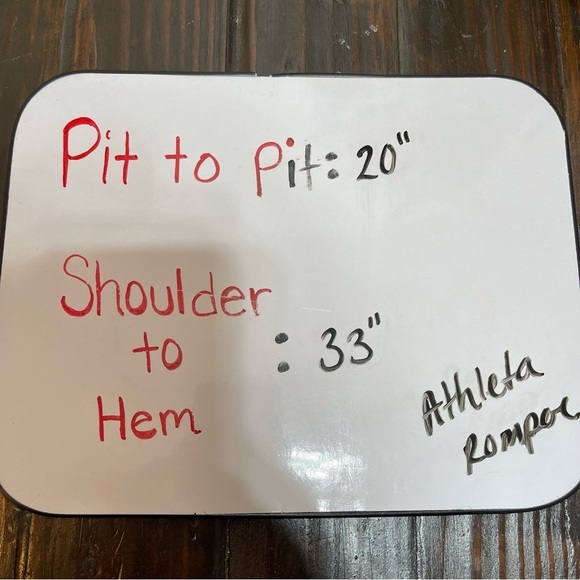 Pit to Pit: 20"
Shoulder
to : 33"
Hem
Athleta